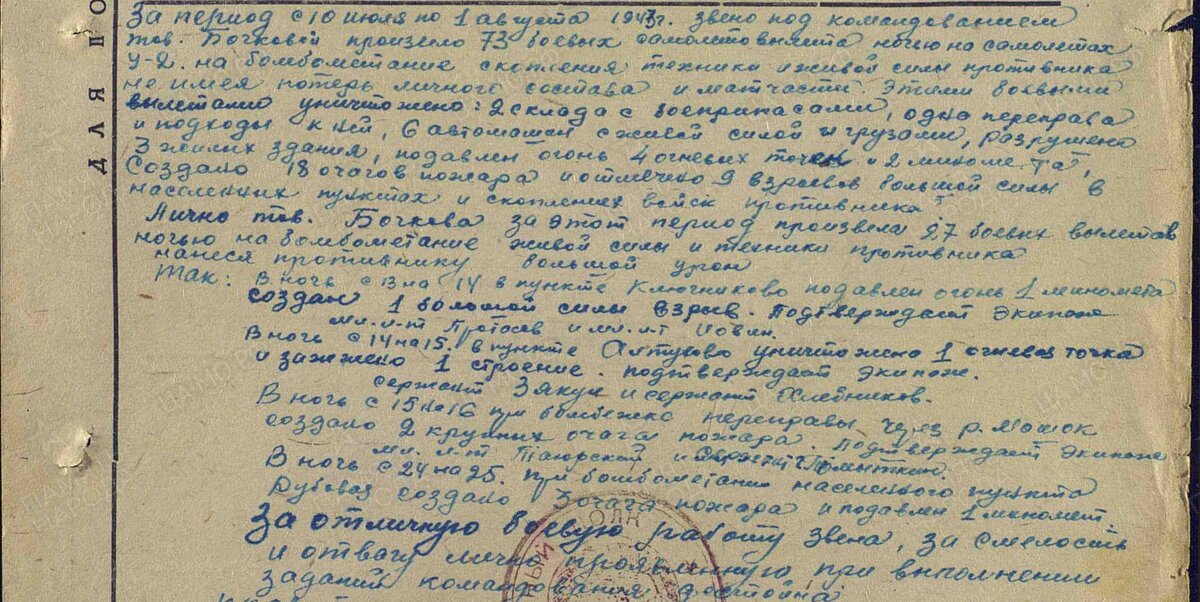 За период с 10 июля по 1 августа 1943г. звено под командованием
тов. Бочковой произвело 73 боевых самолетовылета ночью на самолетах
У-2. на бомбометание скопления техники и живой силы противника
не имея потерь личного состава и матчасти. Этими боевыми
вылетами уничтожено: 2 склада с боеприпасами, одна переправа
и подходы к ней, 6 автомашин с живой силой и грузами, разрушено
3 жилых здания, подавлен огонь 4 огневых точек и 2 миномета,
Создано 18 очагов пожара и отмечено 9 взрывов большой силы в
населенных пунктах и скоплениях войск противника.
Лично тов. Бочкова за этот период произвела 27 боевых вылетов
ночью на бомбометание живой силы и техники противника
нанеся противнику большой урон
Так: В ночь с 13 на 14 в пункте Ключниково подавлен огонь 1 миномета
создан 1 большой силы взрыв. Подтверждает экипаж
мл. л-т Протаев и мл. л-т
В ночь с 14 на 15. в пункте Алтухово уничтожена 1 огневая точка
и зажжено 1 строение. подтверждает экипаж.
сержант Зякун и сержант Хлебников.
В ночь с 15 на 16 при бомбежке переправы через р. Мошок
создано 2 крупных очага пожара. Подтверждает экипаж
мл. л-т Таюрский и сержант
В ночь с 24 на 25. при бомбометании населенного пункта
Дубовая создано 3 очага пожара и подавлен 1 миномет.
За отличную боевую работу звена, за смелость
и отвагу лично проявленную при выполнении
заданий командования достойна
ДЛЯ ПО